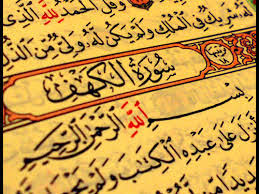 وَقُلِ الْحَمْدُ لِلَّهِ الَّذِي
لَهُ شَرِيكٌ فِي الْمُلْكِ وَلَمْ يَكُنْ لَهُ وَلِيٌّ مِنَ الذُّلِّ
سُورَةُ الْكَهْفِ
بِسْمِ اللَّهِ الرَّحْمَٰنِ الرَّحِيمِ
أَنْزَلَ عَلَىٰ عَبْدِهِ الْكِتَٰبَ وَلَمْ